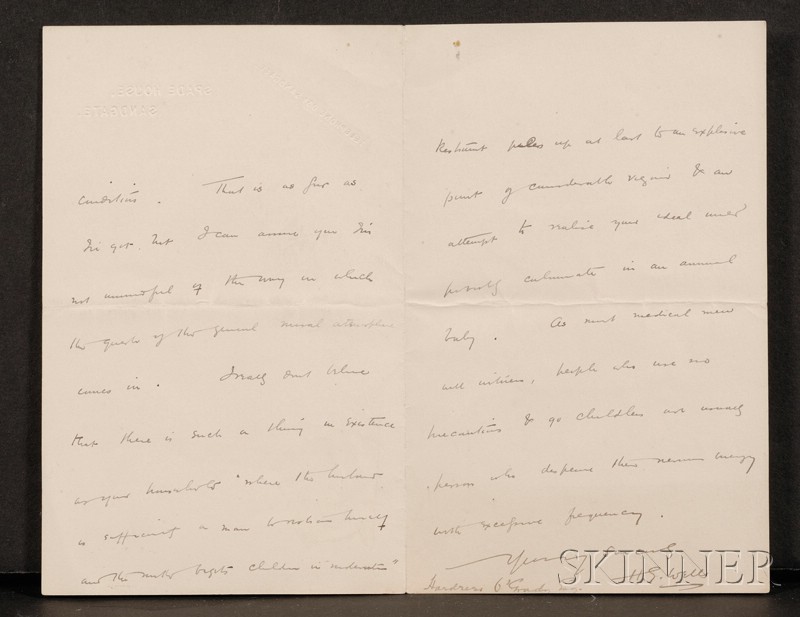 SPADE HOUSE,
SANDGATE.
conditions. That is as far as
I've got. But I can assure you I'm
not unmindful of the way in which
the quality of the general moral atmosphere
comes in. I really don't believe
that there is such a thing in existence
as your household "where the husband
is sufficiently a man to restrain himself
and the mother begets children in moderation"
Restraint piles up at last to an explosive
point of considerable vigour & an
attempt to realise your ideal would
probably culminate in an annual
baby. As most medical men
will witness, people who use no
precautions & go childless are usually
persons who dispense their nervous energy
with excessive frequency.
Yours
H.G. Wells
SKINNER